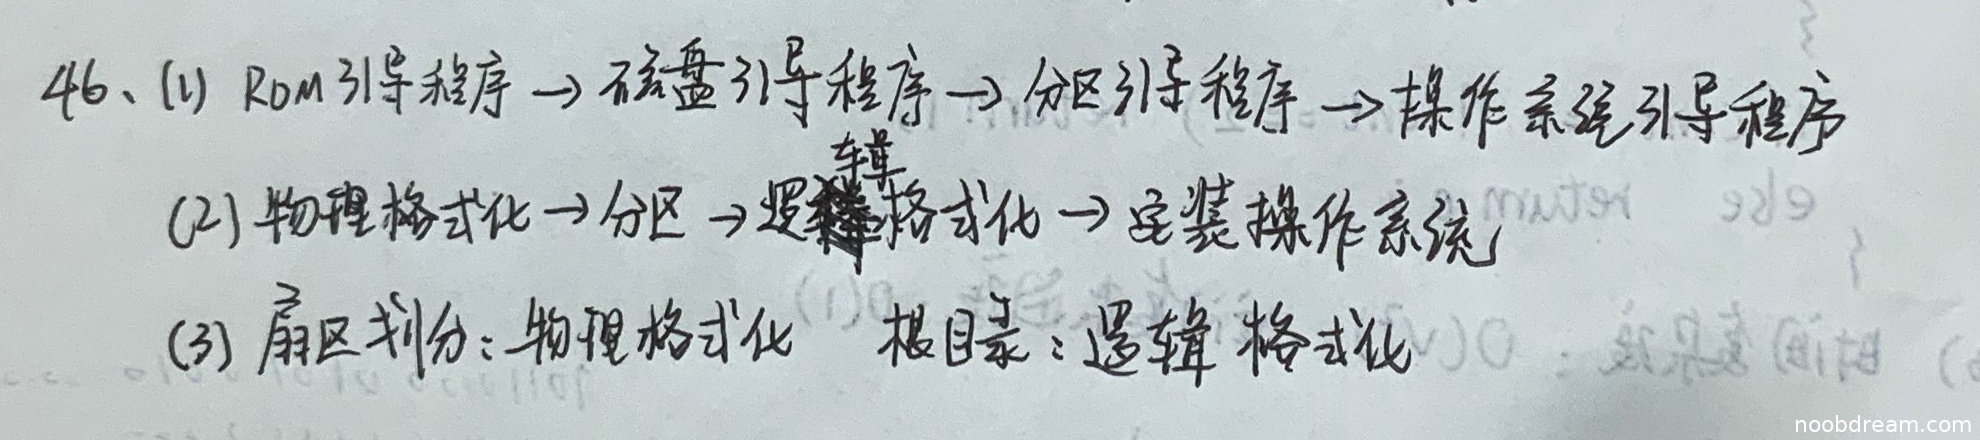 46、(1) ROM引导程序 → 磁盘引导程序 → 分区引导程序 → 操作系统引导程序
(2) 物理格式化 → 分区 → 逻辑格式化 → 安装操作系统
(3) 扇区划分：物理格式化 根目录：逻辑格式化
noobdream.com